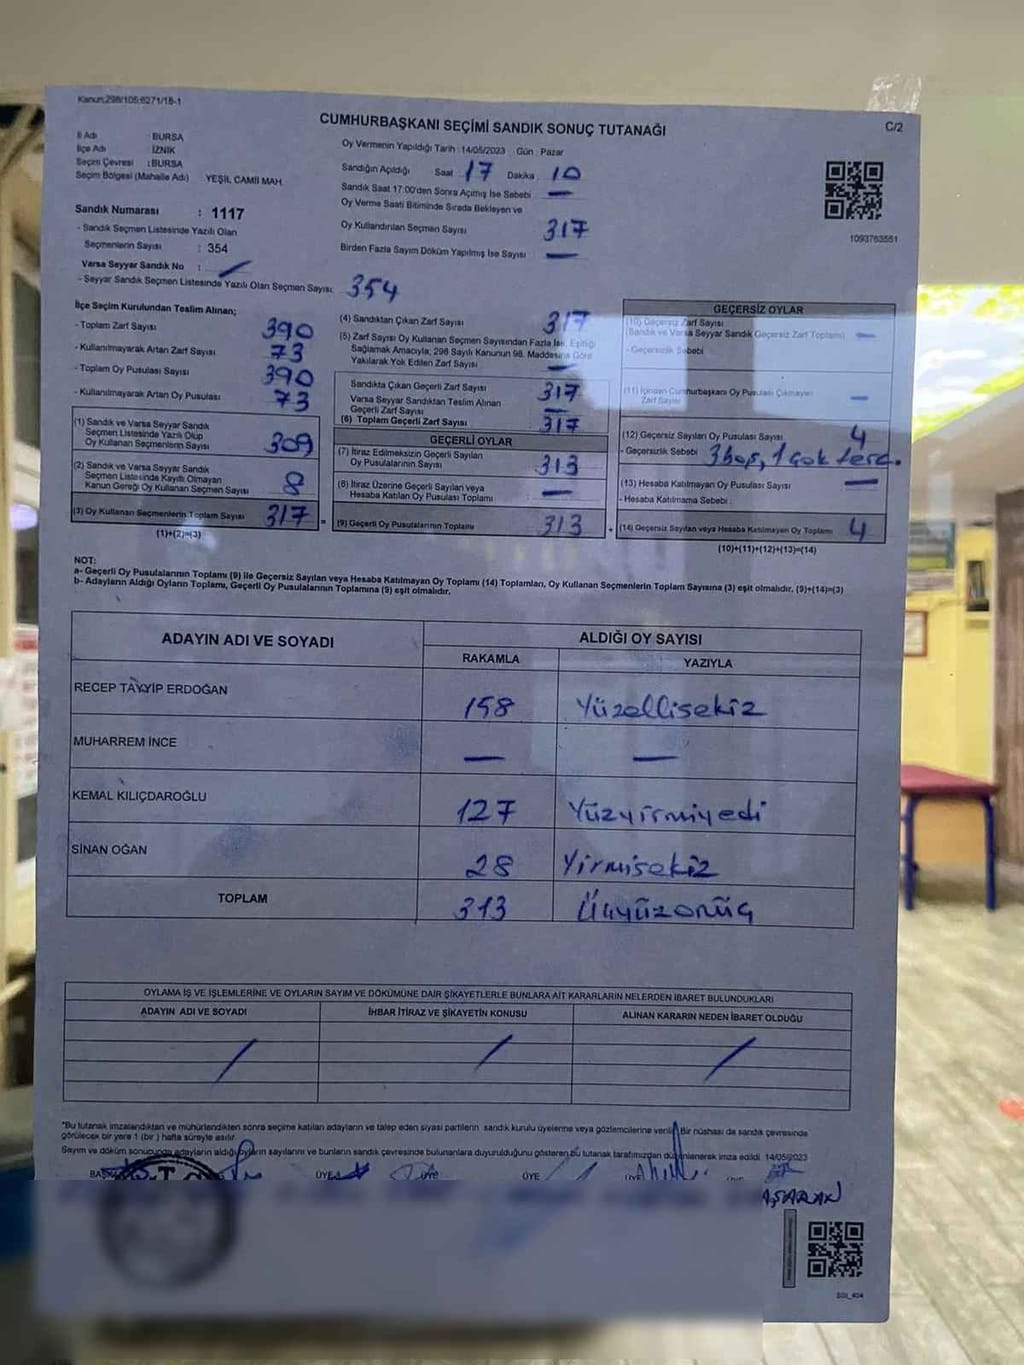 Kanun:298/105:6271/18-1
CUMHURBAŞKANI SEÇİMİ SANDIK SONUÇ TUTANAĞI
C/2
İl Adı : BURSA
İlçe Adı : İZNİK
Seçim Çevresi : BURSA
Seçim Bölgesi (Mahalle Adı) YEŞİL CAMİİ MAH.
Sandık Numarası : 1117
- Sandık Seçmen Listesinde Yazılı Olan
Seçmenlerin Sayısı : 354
Varsa Seyyar Sandık No :
- Seyyar Sandık Seçmen Listesinde Yazılı Olan Seçmen Sayısı: 354
Oy Vermenin Yapıldığı Tarih : 14/05/2023 Gün : Pazar
Sandığın Açıldığı Saat 17 Dakika 10
Sandık Saat 17:00'den Sonra Açımış İse Sebebi —
Oy Verme Saati Bitiminde Sırada Bekleyen ve
Oy Kullandırılan Seçmen Sayısı 317
Birden Fazla Sayım Döküm Yapılmış İse Sayısı —
1093763551
İlçe Seçim Kurulundan Teslim Alınan;
- Toplam Zarf Sayısı 390
- Kullanılmayarak Artan Zarf Sayısı 73
- Toplam Oy Pusulası Sayısı 390
- Kullanılmayarak Artan Oy Pusulası 73
(1) Sandık ve Varsa Seyyar Sandık
Seçmen Listesinde Yazılı Olup
Oy Kullanan Seçmenlerin Sayısı 309
(2) Sandık ve Varsa Seyyar Sandık
Seçmen Listesinde Kayıtlı Olmayan
Kanun Gereği Oy Kullanan Seçmen Sayısı 8
(3) Oy Kullanan Seçmenlerin Toplam Sayısı 317 =
(1)+(2)=(3)
(4) Sandıktan Çıkan Zarf Sayısı 317
(5) Zarf Sayısı Oy Kullanan Seçmen Sayısından Fazla İse, Eşitliği
Sağlamak Amacıyla, 298 Sayılı Kanunun 98. Maddesine Göre
Yakılarak Yok Edilen Zarf Sayısı —
Sandıkta Çıkan Geçerli Zarf Sayısı 317
Varsa Seyyar Sandıktan Teslim Alınan
Geçerli Zarf Sayısı —
(6) Toplam Geçerli Zarf Sayısı 317
GEÇERLİ OYLAR
(7) İtiraz Edilmeksizin Geçerli Sayılan
Oy Pusulalarının Sayısı 313
(8) İtiraz Üzerine Geçerli Sayılan veya
Hesaba Katılan Oy Pusulası Toplamı —
(9) Geçerli Oy Pusulalarının Toplamı 313 +
GEÇERSİZ OYLAR
(10) Geçersiz Zarf Sayısı
(Sandık ve Varsa Seyyar Sandık Geçersiz Zarf Toplamı) —
- Geçersizlik Sebebi
(11) İçinden Cumhurbaşkanı Oy Pusulası Çıkmayan
Zarf Sayısı —
(12) Geçersiz Sayılan Oy Pusulası Sayısı 4
- Geçersizlik Sebebi 3 boş, 1 çok terc.
(13) Hesaba Katılmayan Oy Pusulası Sayısı —
- Hesaba Katılmama Sebebi :
(14) Geçersiz Sayılan veya Hesaba Katılmayan Oy Toplamı 4
(10)+(11)+(12)+(13)=(14)
NOT:
a- Geçerli Oy Pusulalarının Toplamı (9) ile Geçersiz Sayılan veya Hesaba Katılmayan Oy Toplamı (14) Toplamları, Oy Kullanan Seçmenlerin Toplam Sayısına (3) eşit olmalıdır. (9)+(14)=(3)
b- Adayların Aldığı Oyların Toplamı, Geçerli Oy Pusulalarının Toplamına (9) eşit olmalıdır.
ADAYIN ADI VE SOYADI ALDIĞI OY SAYISI
RAKAMLA YAZIYLA
RECEP TAYYİP ERDOĞAN 158 Yüzellisekiz
MUHARREM İNCE — —
KEMAL KILIÇDAROĞLU 127 Yüzyirmiyedi
SİNAN OĞAN 28 Yirmisekiz
TOPLAM 313 Üçyüzonüç
OYLAMA İŞ VE İŞLEMLERİNE VE OYLARIN SAYIM VE DÖKÜMÜNE DAİR ŞİKAYETLERLE BUNLARA AİT KARARLARIN NELERDEN İBARET BULUNDUKLARI
ADAYIN ADI VE SOYADI İHBAR İTİRAZ VE ŞİKAYETİN KONUSU ALINAN KARARIN NEDEN İBARET OLDUĞU
*Bu tutanak imzalandıktan ve mühürlendikten sonra seçime katılan adayların ve talep eden siyasi partilerin sandık kurulu üyelerine veya gözlemcilerine verilir. Bir nüshası da sandık çevresinde
görülecek bir yere 1 (bir) hafta süreyle asılır.
Sayım ve döküm sonucunda adayların aldığı oyların sayılarını ve bunların sandık çevresinde bulunanlara duyurulduğunu gösteren bu tutanak tarafımızdan düzenlenerek imza edildi. 14/05/2023
ÜYE ÜYE ÜYE ÜYE
AŞARAN